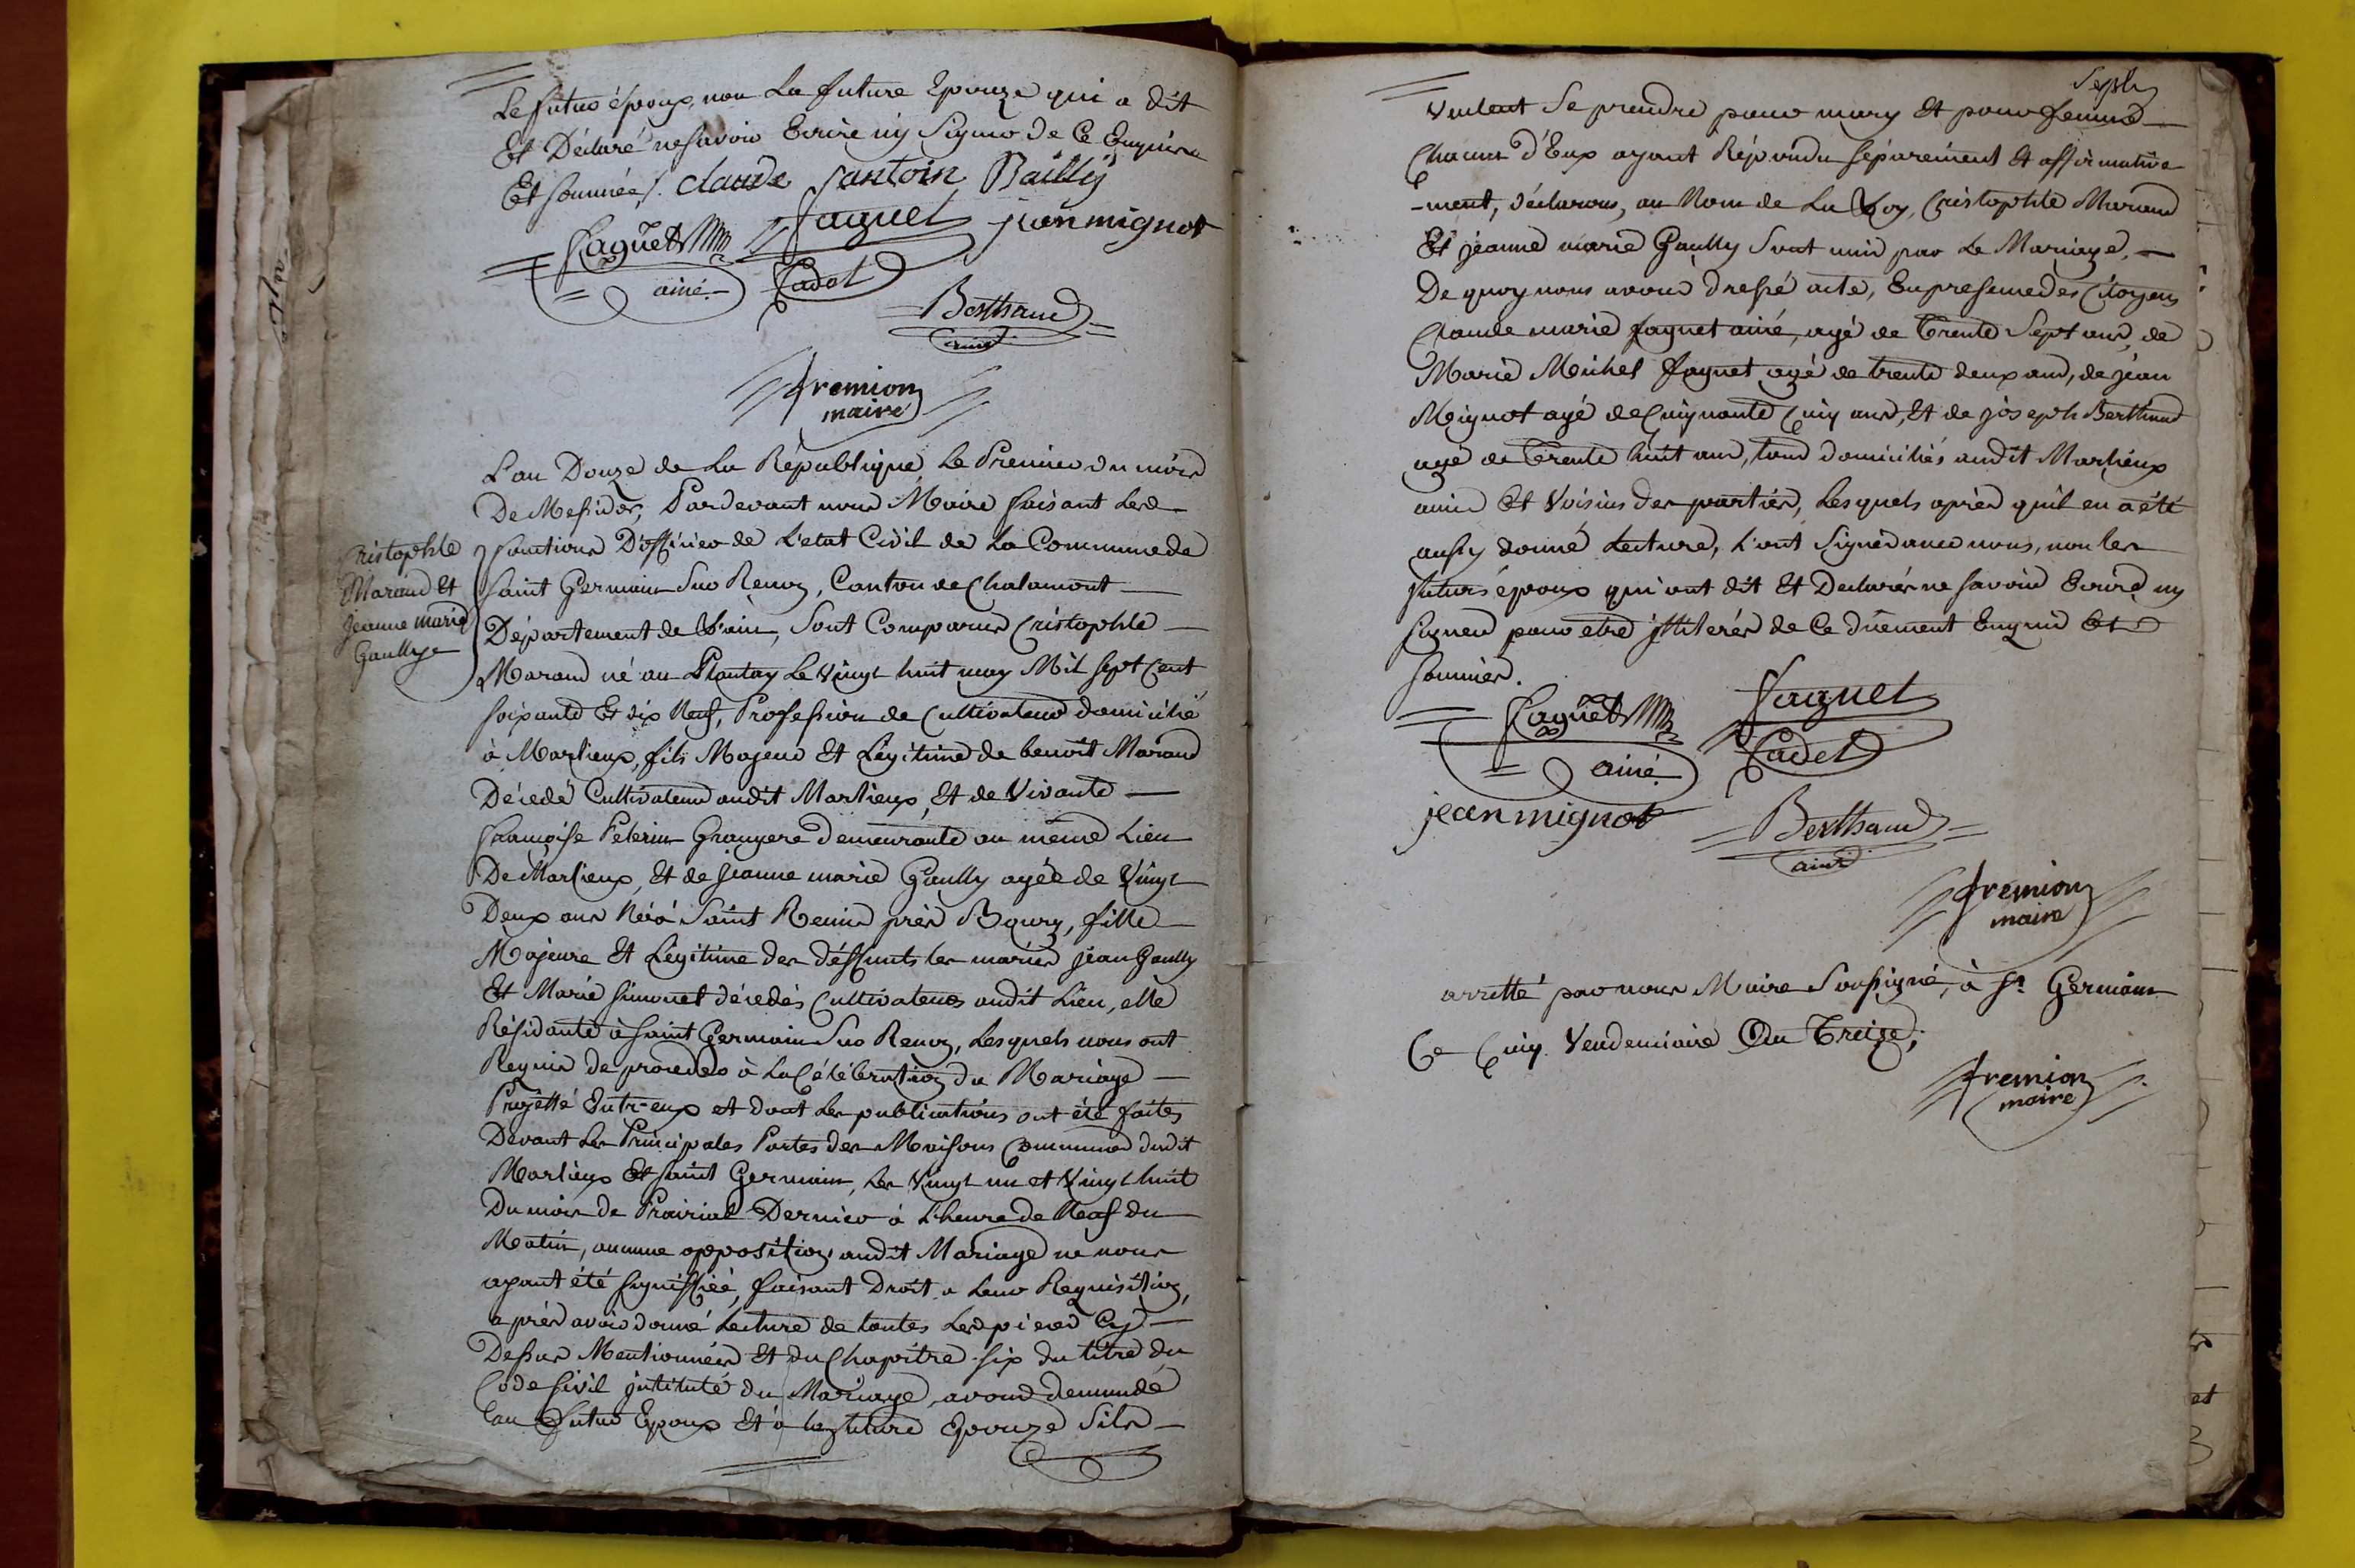 Le futur époux, non La future Epouze qui a dit
Et Déclaré ne savoir Ecrire ny Signer de Ce Enquise
Et sommée /. claude santoin Bailly
faguet faguet jean mignot
ainé Cadet
Berthaud
ainé
fremion
maire
L'an Douze de La République Le Premier du mois
De Messidor, Pardevant nous Maire faisant Les
fonctions D'officier de L'etat Civil de La Commune de
Saint Germain Sur Renoz, Canton de Chalamont
Département de L'ain, Sont Comparus Cristophle
Marand né au Plantay Le Vingt huit may Mil sept Cent
soixante Et dix Neuf, Profession de Cultivateur domicilié
à Marlieux, fils Majeur Et Légitime de benoit Marand
Décédé Cultivateur audit Marlieux, Et de Vivante
françoise Pelerin Grangere demeurante au même Lieu
De Marlieux, Et de Jeanne marie Gaully agée de Vingt
Deux ans Née à Saint Remis près Bourg, fille
Majeure Et Légitime des deffunts les mariés jean Gaully
Et Marie Simonet décédés Cultivateurs audit Lieu, elle
Résidante à Saint Germain Sur Renoz, Lesquels nous ont
Requis de procéder à La Célébration du Mariage
Projetté Entr-eux et dont Les publications ont été faites
Devant Les Principales Portes des Maisons Communes dudit
Marlieux Et Saint Germain, Les Vingt un et Vingt huit
Du mois de Prairial Dernier à L'heure de Neuf du
Matin, aucune opposition audit Mariage ne nous
ayant été signiffiée, faisant Droit a Leur Requisition,
après avoir donné Lecture de toutes Les pieces Cy
Dessus Mentionnées Et du Chapitre six du titre du
Code Sivil jntitulé du Mariage, avons demandé
au futur Epoux Et à la future Epouze Sils
Cristophle
Marand Et
Jeanne marie
Gaully
Sept
Veulent Se prendre pour mary Et pour femme
Chacun d'Eux ayant Répondu séparément Et affirmative
-ment, déclarons, au Nom de La Loy, Cristophle Marand
Et jeanne marie Gaully Sont unis par Le Mariage,
De quoy nous avons dressé acte, En presence des Citoyens
Claude marie faguet ainé, agé de Trente Sept ans, de
Marie Michel faguet agé de trente deux ans, de jean
Mignot agé de Cinquante Cinq ans, Et de joseph Berthaud
agé de Trente huit ans, tous domiciliés audit Marlieux
amis Et Voisins des parties, Lesquels après quil en a été
aussy donné Lecture, L'ont Signés avec nous, non les
futurs époux qui ont dit Et Declarés ne savoir Ecrire ny
signer pour etre jlliterés de Ce dûement Enquis Et
sommés.
faguet faguet
ainé Cadet
jean mignot Berthaud
ainé
fremion
maire
arretté par nous Maire Soussigné, à St. Germain
Ce Cinq Vendemiaire An Treize;
fremion
maire